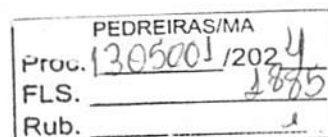 PEDREIRAS/MA
Proc. 1305001/2024
FLS. 1885
Rub.